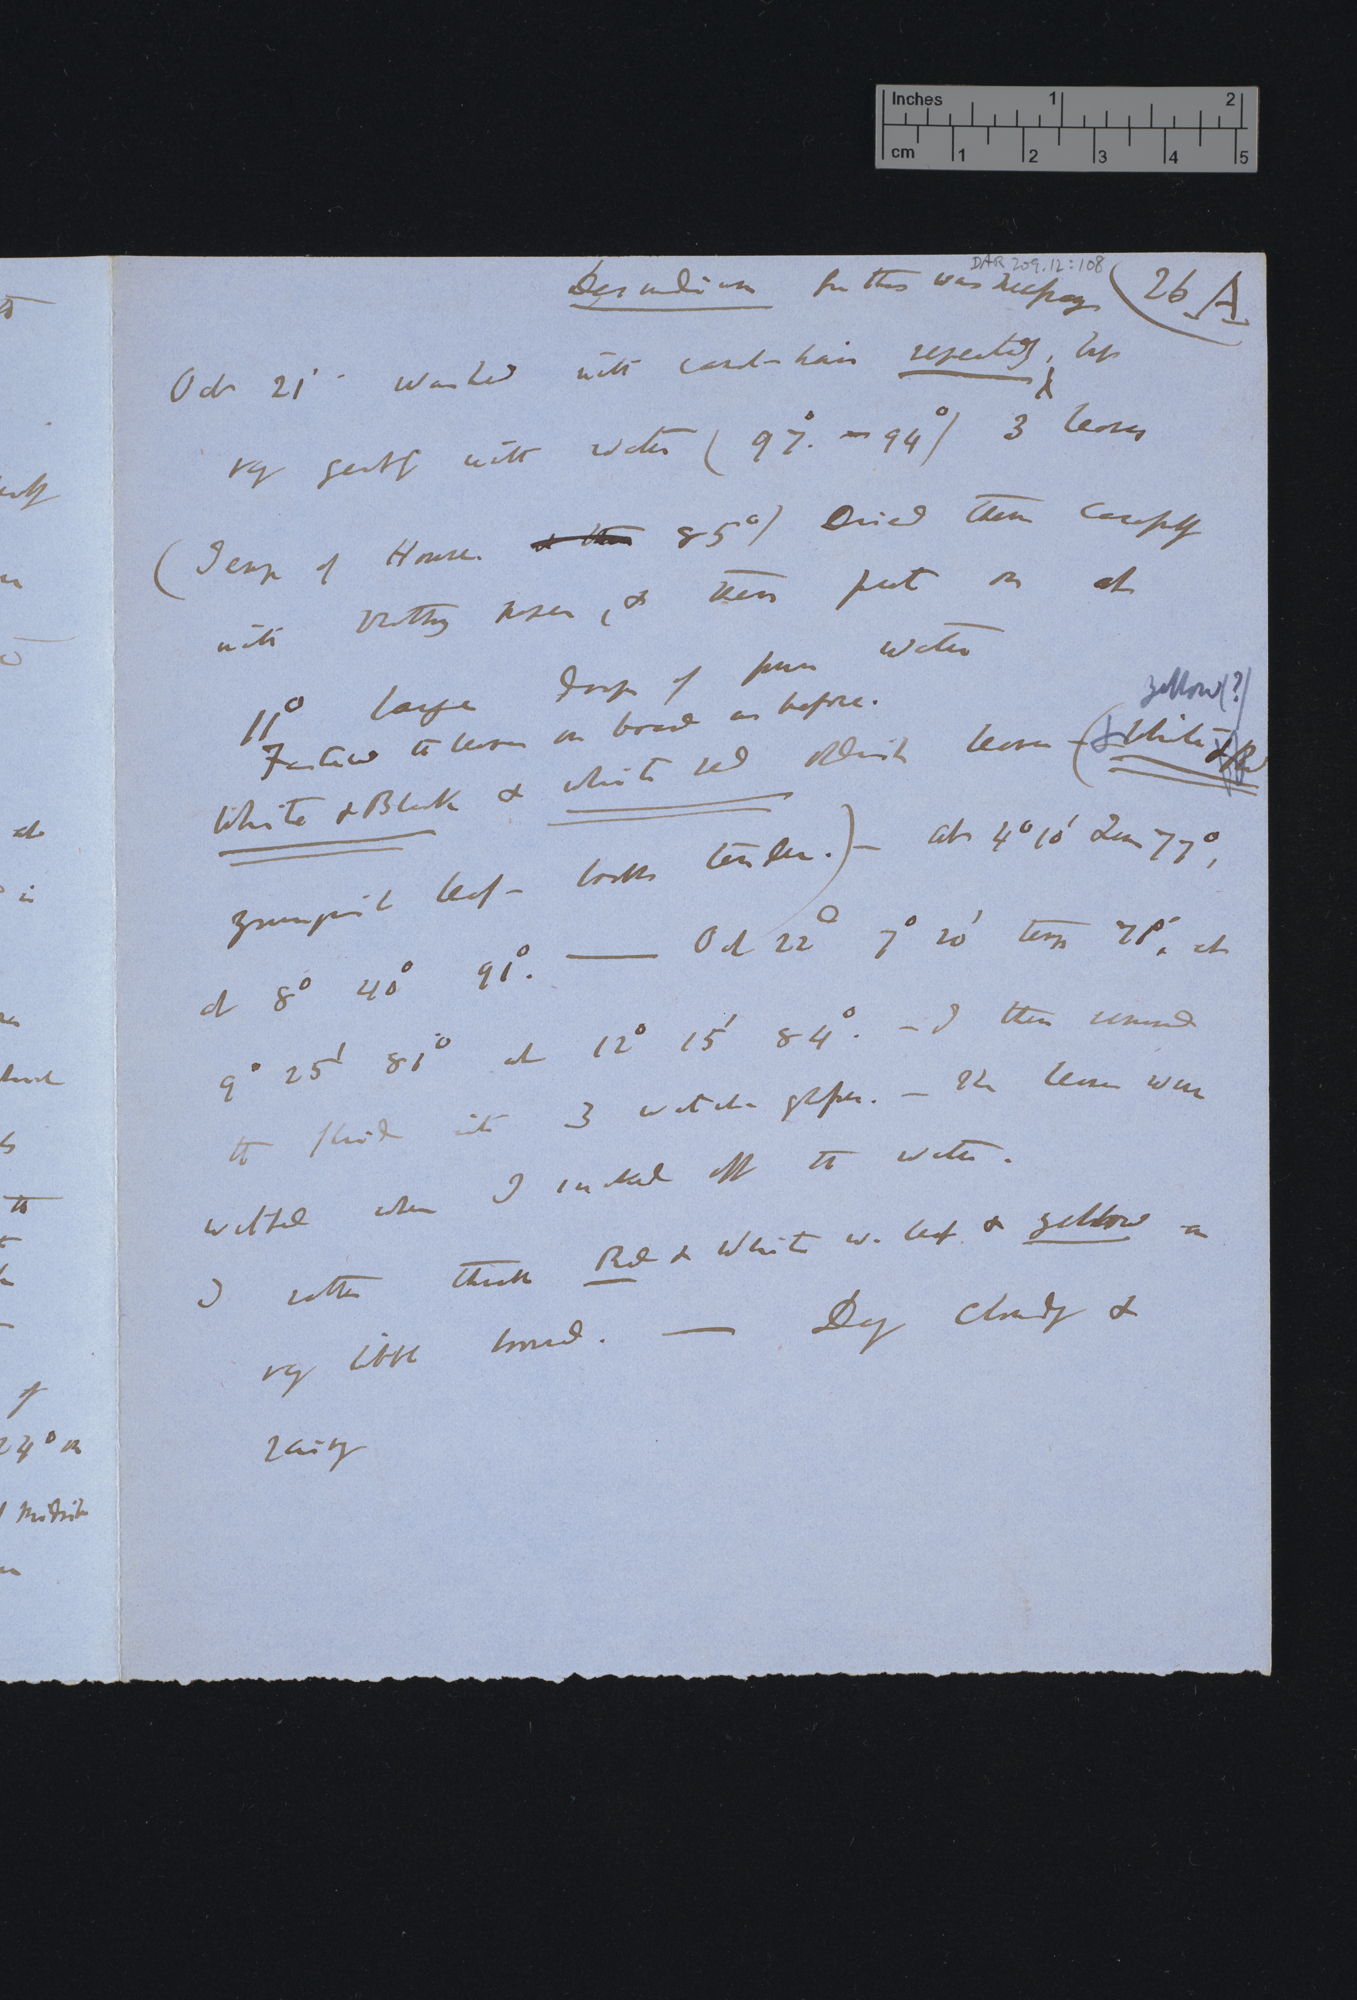 Inches 1 2
cm 1 2 3 4 5
DAR 209.12:108
Desmodium for this was 26 A
Oct 21st washed with camel-hair repeatedly, but
very gently with water (97° - 94°) 3 leaves
(Temp of House 85°) Dried them carefully
with blotting paper, & then put on at
11° large drops of pure water
Fastened the leaves on board as before.
yellow(?)
White & Black & white red leaves - (White & Red
leaf - looks tender.) - at 4° 10' Tem 77°,
at 8° 40° 91°. — Oct 22d 7° 20' temp 78°, at
9° 25' 81° at 12° 15' 84°. - I then removed
the fluid into 3 watch glasses. - The leaves were
wilted when I sucked off the water.
I rather think Red & White w. leaf & yellow on
very little board. — Day cloudy &
rainy
at
of
24° in